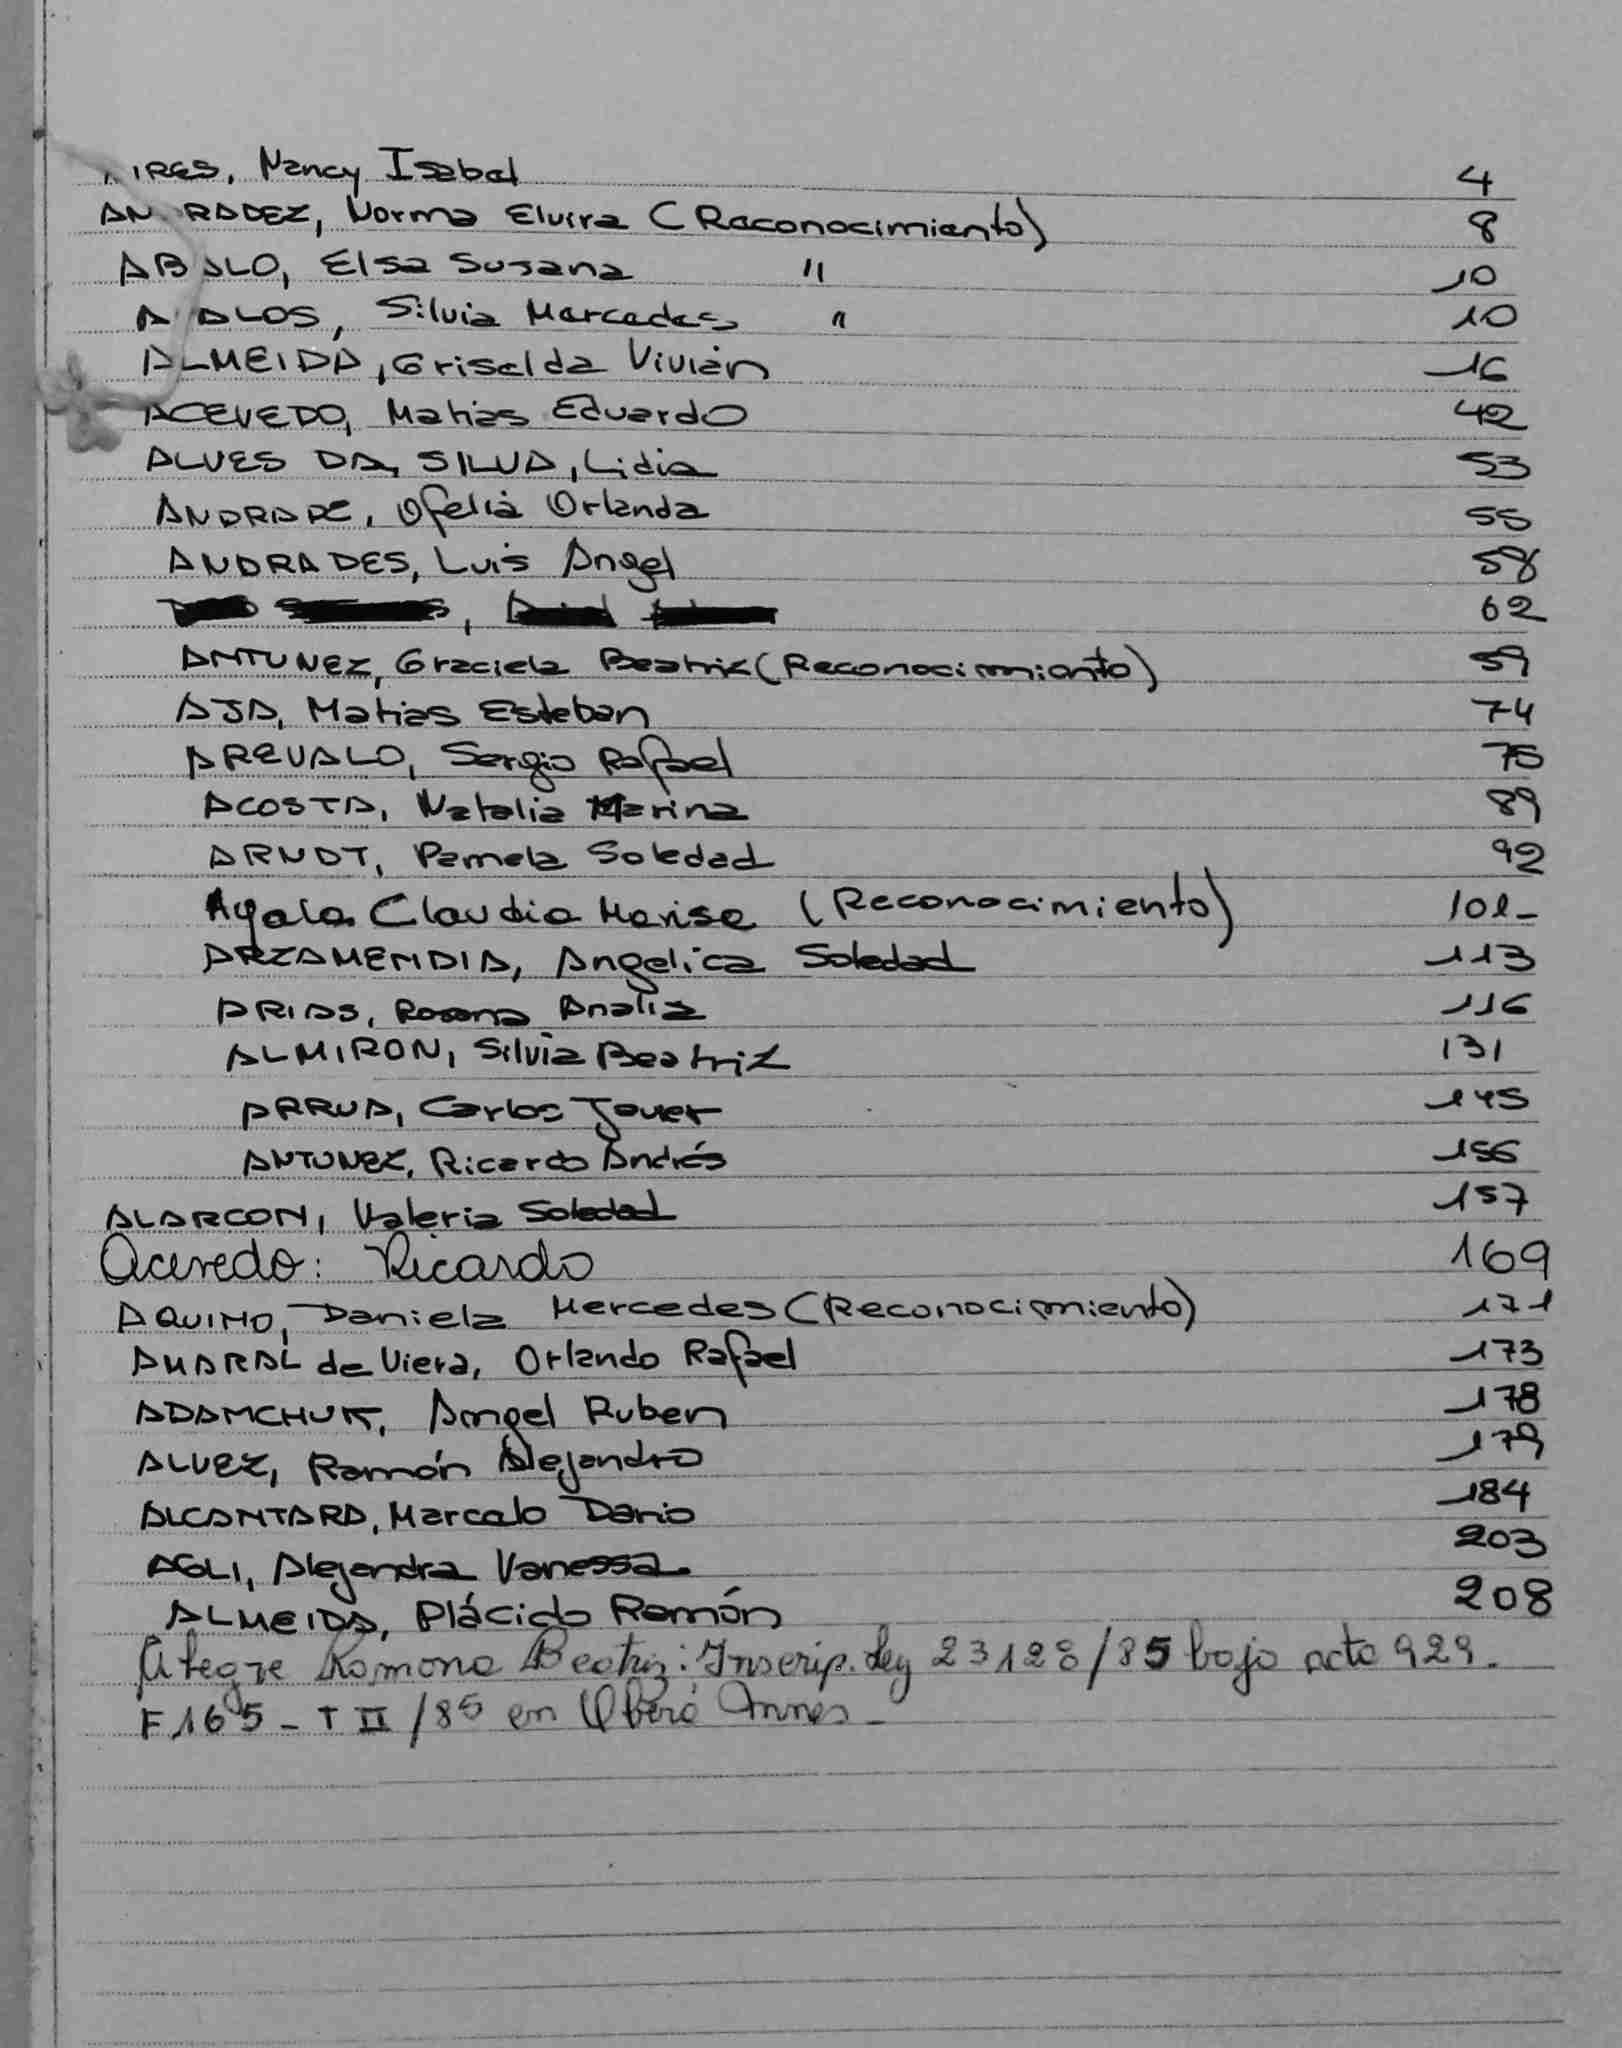 AIRES, Nancy Isabel 4
ANDRADEZ, Norma Elvira (Reconocimiento) 8
ABALO, Elsa Susana " 10
AVALOS, Silvia Mercedes " 10
ALMEIDA, Griselda Vivián 16
ACEVEDO, Matias Eduardo 42
ALVES DA SILVA, Lidia 53
ANDRADE, Ofelia Orlanda 55
ANDRADES, Luis Angel 58
62
ANTUNEZ, Graciela Beatriz (Reconocimiento) 59
AJA, Matias Esteban 74
AREVALO, Sergio Rafael 75
ACOSTA, Natalia Marina 89
ARNDT, Pamela Soledad 92
Ayala Claudia Marisa (Reconocimiento) 101-
ARZAMENDIA, Angelica Soledad 113
ARIAS, Rosana Analia 116
ALMIRON, Silvia Beatriz 131
ARRUA, Carlos Javier 145
ANTUNEZ, Ricardo Andrés 156
ALARCON, Valeria Soledad 157
Acevedo: Ricardo 169
AQUINO, Daniela Mercedes (Reconocimiento) 171
AMARAL de Viera, Orlando Rafael 173
ADAMCHUK, Angel Ruben 178
ALVEZ, Ramón Alejandro 179
ALCANTARA, Marcelo Dario 184
AGLI, Alejandra Vanessa. 203
ALMEIDA, Plácido Ramón 208
Alegre Ramona Beatriz: Inscrip. Ley 23128/85 bajo acta 929.
F 165 - T II /85 en Oberá Mnes -